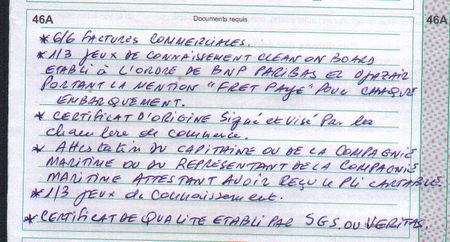 46A Documents requis 46A
* 6/6 FACTURES COMMERCIALES.
* 1/3 JEUX DE CONNAISSEMENT CLEAN ON BOARD
ETABLI à L'ORDRE DE BNP PARIBAS EL DJAZAIR
PORTANT LA MENTION "FRET PAYE" POUR CHAQUE
EMBARQUEMENT.
* CERTIFICAT D'ORIGINE Signé et Visé Par la
chambre de commerce.
* Attestation du CAPITAINE OU DE LA COMPAGNIE
MARITIME OU DU REPRESENTANT DE LA COMPAGNIE
MARITIME ATTESTANT AVOIR REÇU LE PLI CARTABLE.
* 1/3 JEUX de Connaissement.
* CERTIFICAT DE QUALITE ETABLI PAR SGS OU VERITAS.